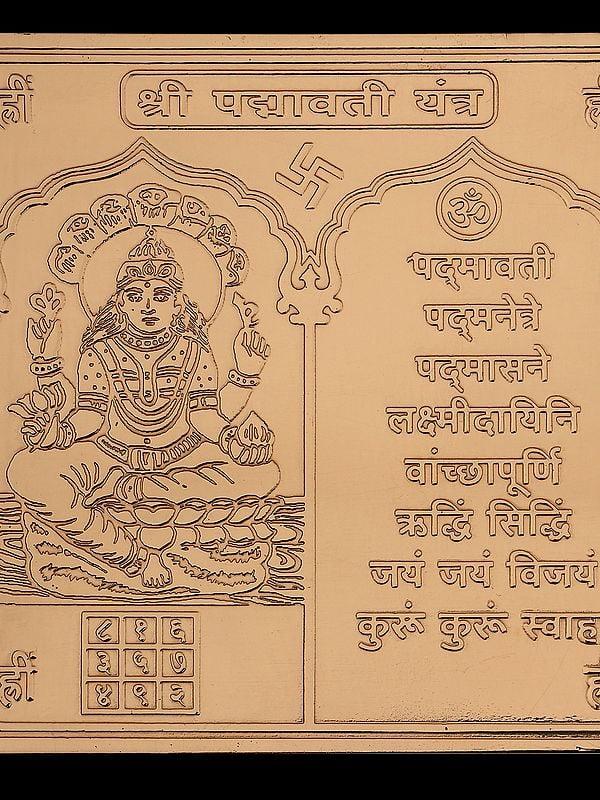 ह्रीं
श्री पद्मावती यंत्र
ॐ
पद्मावती
पद्मनेत्रे
पद्मासने
लक्ष्मीदायिनि
वांच्छापूर्णि
ऋद्धिं सिद्धिं
जयं जयं विजयं
कुरूं कुरूं स्वाहा
८ १ ६
३ ५ ७
४ ९ २
ह्रीं